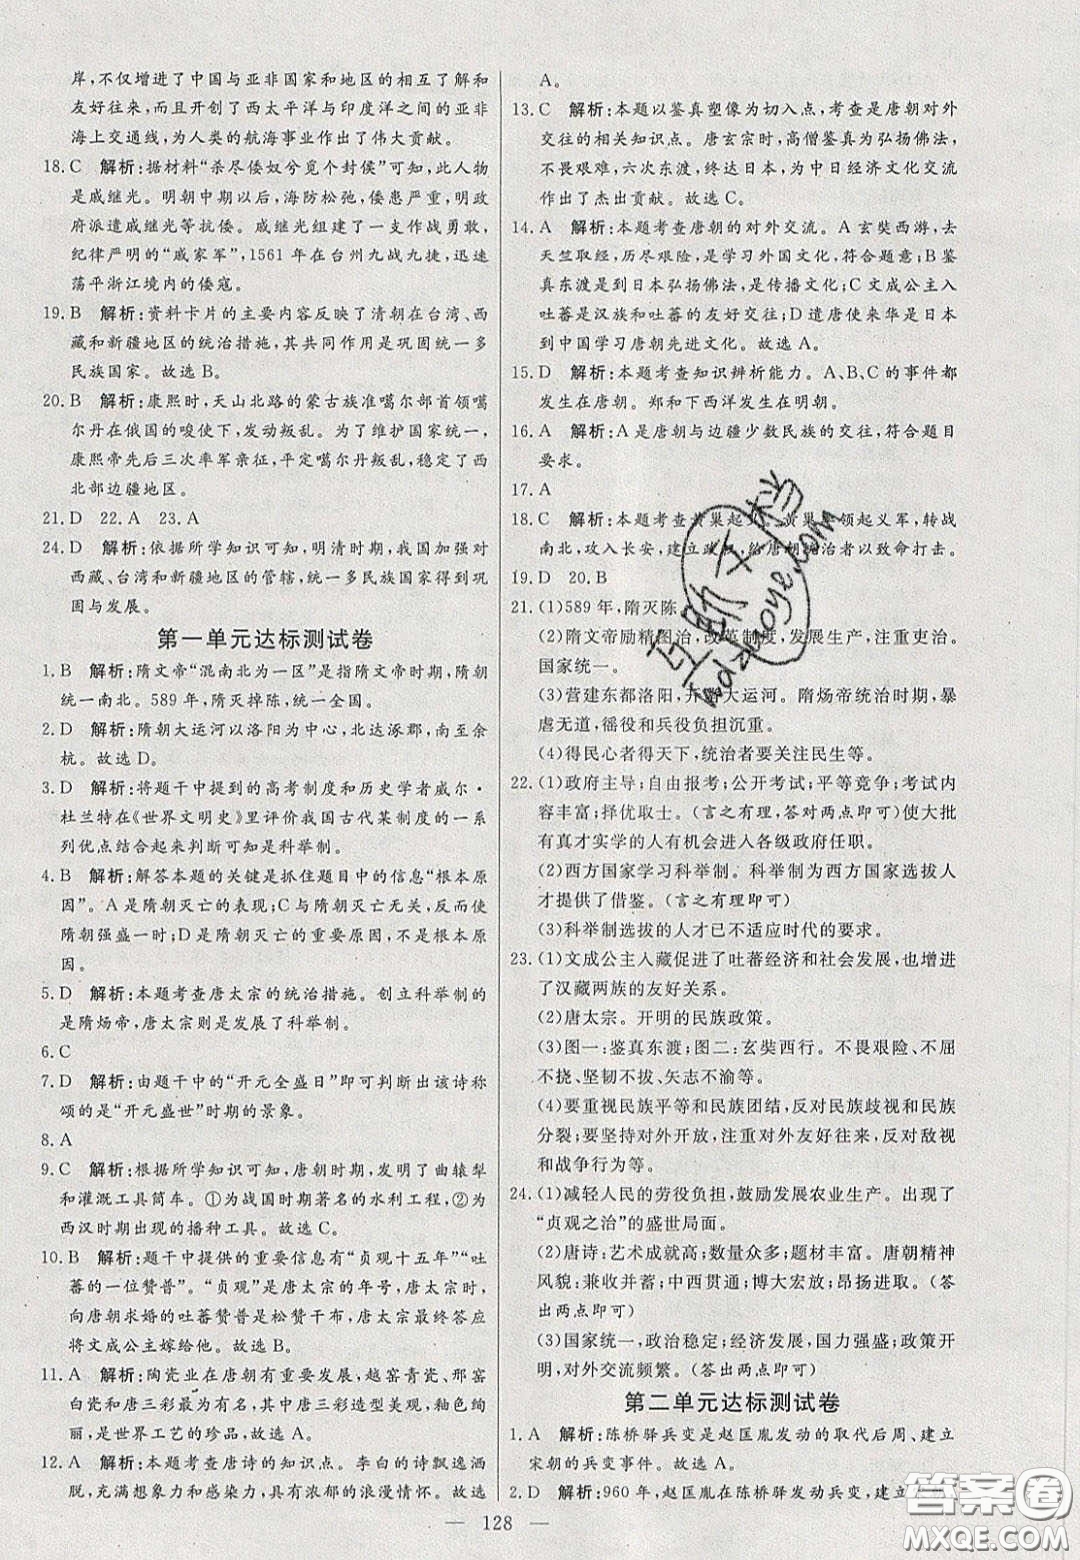 岸,不仅增进了中国与亚非国家和地区的相互了解和
友好往来,而且开创了西太平洋与印度洋之间的亚非
海上交通线,为人类的航海事业作出了伟大贡献。
18. C 解析:据材料“杀尽倭奴兮觅个封侯”可知,此人物
是戚继光。明朝中期以后,海防松弛,倭患严重,明政
府派遣戚继光等抗倭。戚继光组建了一支作战勇敢,
纪律严明的“戚家军”,1561年在台州九战九捷,迅速
荡平浙江境内的倭寇。
19. B 解析:资料卡片的主要内容反映了清朝在台湾、西
藏和新疆地区的统治措施,其共同作用是巩固统一多
民族国家。故选B。
20. B 解析:康熙时,天山北路的蒙古族准噶尔部首领噶
尔丹在俄国的唆使下,发动叛乱。为了维护国家统一,
康熙帝先后三次率军亲征,平定噶尔丹叛乱,稳定了西
北部边疆地区。
21. D 22. A 23. A
24. D 解析:依据所学知识可知,明清时期,我国加强对
西藏、台湾和新疆地区的管辖,统一多民族国家得到巩
固与发展。
第一单元达标测试卷
1. B 解析:隋文帝“混南北为一区”是指隋文帝时期,隋朝
统一南北。589年,隋灭掉陈,统一全国。
2. D 解析:隋朝大运河以洛阳为中心,北达涿郡,南至余
杭。故选D。
3. D 解析:将题干中提到的高考制度和历史学者威尔·
杜兰特在《世界文明史》里评价我国古代某制度的一系
列优点结合起来判断可知是科举制。
4. B 解析:解答本题的关键是抓住题目中的信息“根本原
因”。A是隋朝灭亡的表现;C与隋朝灭亡无关,反映了
隋朝强盛一时;D是隋朝灭亡的重要原因,不是根本原
因。
5. D 解析:本题考查唐太宗的统治措施。创立科举制的
是隋炀帝,唐太宗则是发展了科举制。
6. C
7. D 解析:由题干中的“开元全盛日”即可判断出该诗称
颂的是“开元盛世”时期的景象。
8. A
9. C 解析:根据所学知识可知,唐朝时期,发明了曲辕犁
和灌溉工具筒车。①为战国时期著名的水利工程,②为
西汉时期出现的播种工具。故选C。
10. B 解析:题干中提供的重要信息有“贞观十五年”“吐
蕃的一位赞普”。“贞观”是唐太宗的年号,唐太宗时,
向唐朝求婚的吐蕃赞普是松赞干布,唐太宗最终答应
将文成公主嫁给他。故选B。
11. A 解析:陶瓷业在唐朝有重要发展,越窑青瓷、邢窑
白瓷和唐三彩最为有名,其中唐三彩造型美观,釉色绚
丽,是世界工艺的珍品。故选A。
12. A 解析:本题考查唐诗的知识点。李白的诗飘逸洒
脱,充满想象力和感染力,具有浓郁的浪漫情怀。故选
A。
13. C 解析:本题以鉴真塑像为切入点,考查是唐朝对外
交往的相关知识点。唐玄宗时,高僧鉴真为弘扬佛法,
不畏艰难,六次东渡,终达日本,为中日经济文化交流
作出了杰出贡献。故选C。
14. A 解析:本题考查唐朝的对外交流。A玄奘西游,去
天竺取经,历尽艰险,是学习外国文化,符合题意;B鉴
真东渡是到日本弘扬佛法,是传播文化;C文成公主入
吐蕃是汉族和吐蕃的友好交往;D遣唐使来华是日本
到中国学习唐朝先进文化。故选A。
15. D 解析:本题考查知识辨析能力。A、B、C的事件都
发生在唐朝。郑和下西洋发生在明朝。
16. A 解析:A是唐朝与边疆少数民族的交往,符合题目
要求。
17. A
18. C 解析:本题考查黄巢起义。黄巢率领起义军,转战
南北,攻入长安,建立政权,给唐朝统治者以致命打击。
19. D 20. B
21. (1)589年,隋灭陈。
(2)隋文帝励精图治,改革制度,发展生产,注重吏治。
国家统一。
(3)营建东都洛阳,开凿大运河。隋炀帝统治时期,暴
虐无道,徭役和兵役负担沉重。
(4)得民心者得天下,统治者要关注民生等。
22. (1)政府主导;自由报考;公开考试;平等竞争;考试内
容丰富;择优取士。(言之有理,答对两点即可)使大批
有真才实学的人有机会进入各级政府任职。
(2)西方国家学习科举制。科举制为西方国家选拔人
才提供了借鉴。(言之有理即可)
(3)科举制选拔的人才已不适应时代的要求。
23. (1)文成公主入藏促进了吐蕃经济和社会发展,也增进
了汉藏两族的友好关系。
(2)唐太宗。开明的民族政策。
(3)图一:鉴真东渡;图二:玄奘西行。不畏艰险、不屈
不挠、坚韧不拔、矢志不渝等。
(4)要重视民族平等和民族团结,反对民族歧视和民族
分裂;要坚持对外开放,注重对外友好往来,反对敌视
和战争行为等。
24. (1)减轻人民的劳役负担,鼓励发展农业生产。出现了
“贞观之治”的盛世局面。
(2)唐诗:艺术成就高;数量众多;题材丰富。唐朝精神
风貌:兼收并蓄;中西贯通;博大宏放;昂扬进取。(答
出两点即可)
(3)国家统一,政治稳定;经济发展,国力强盛;政策开
明,对外交流频繁。(答出两点即可)
第二单元达标测试卷
1. A 解析:陈桥驿兵变是赵匡胤发动的取代后周、建立
宋朝的兵变事件。故选A。
2. D 解析:960年,赵匡胤在陈桥驿发动兵变,建立
— 128 —
互助文档
hdzuoye.com
答案圈
MXQE.COM